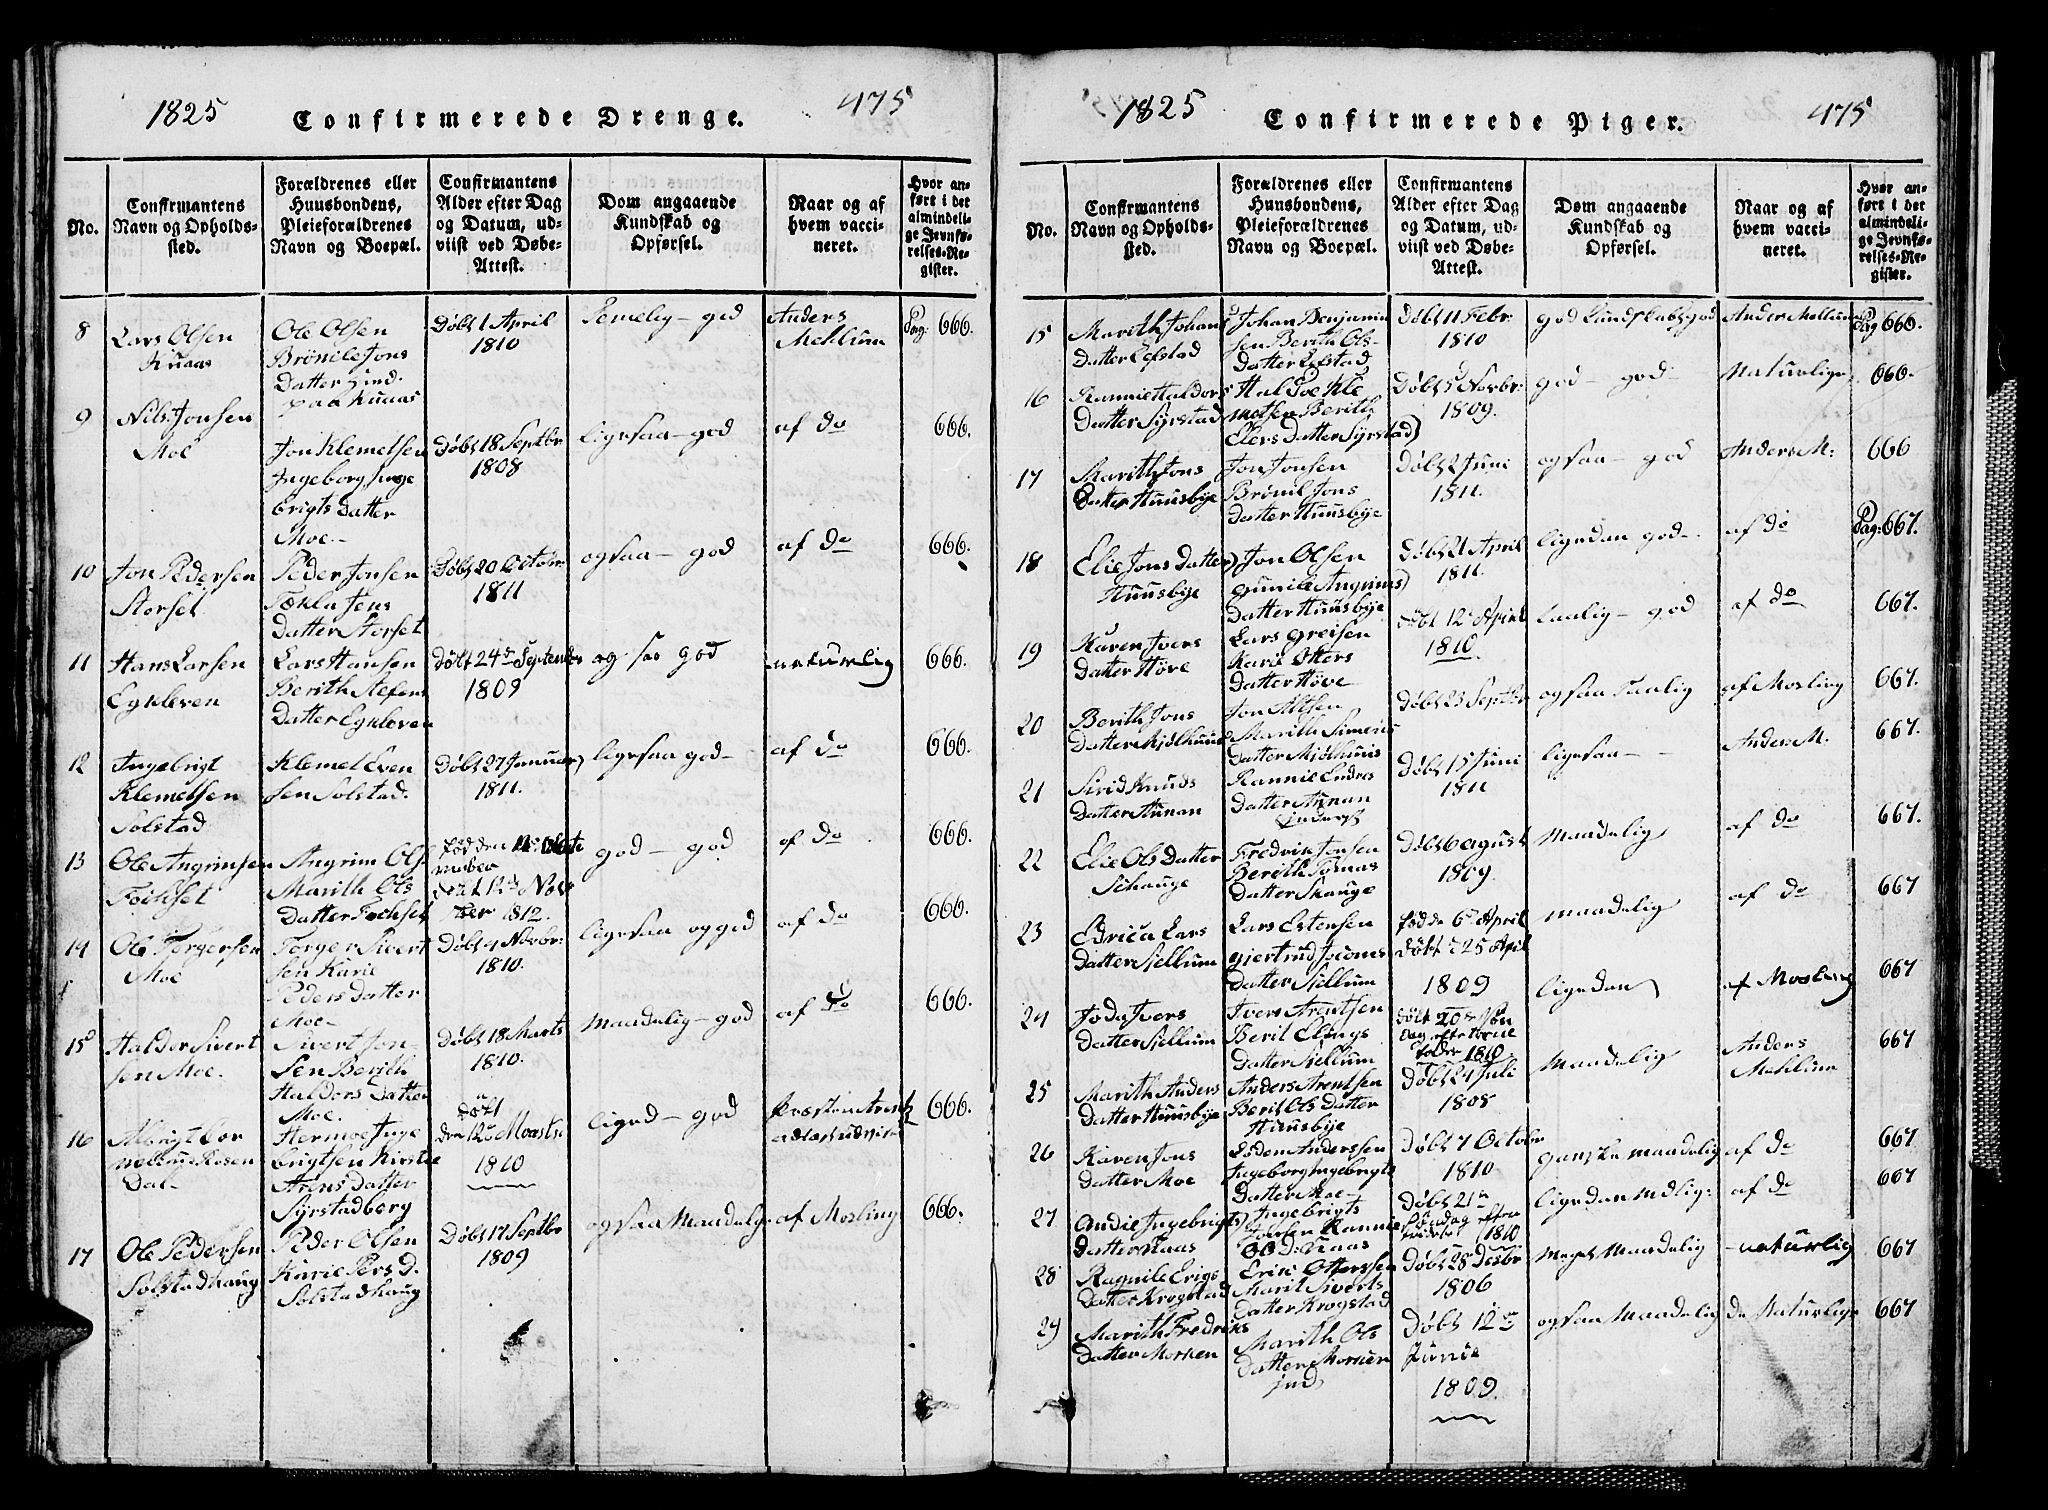 1825 Confirmerede Drenge. 475
No.
Confirmantens
Navn og Opholds-
sted.
Forældrenes eller
Huusbondens,
Pleieforældrenes
Navn og Boepæl.
Confirmantens
Alder efter Dag
og Datum, ud-
viist ved Døbe-
Attest.
Dom angaaende
Kundskab og
Opførsel.
Naar og af
hvem vacci-
neret.
Hvor an-
ført i det
almindeli-
ge Jevnfø-
relses-Re-
gister.
8
Lars Olsen
Kuaas
Ole Olsen
Brönile Jons
Datter Hind.
paa Kuaas
Döbt 1 April
1810
Temelig - god
Anders
Mehlum
Pag: 666.
9
Nils Jonsen
Moe
Jon Klemetsen
Ingeborg Inge
brigts Datter
Moe.-
Döbt 18 Septbr
1808
ligesaa - god
af do
666.
10
Jon Pedersen
Storset
Peder Jonsen
Tøkla Jens
Datter Storset
Döbt 20 Octobr
1811
ogsaa - god
af do
666.
11
Hans Larsen
Egkleven
Lars Hansen
Berith Stefens
Datter Egkleven
Døbt 24de September
1809
og saa god
naturlig
666.
12
Ingebrigt
Klemetsen
Solstad
Klemet Even
sen Solstad.
Döbt 27 Januar
1811.
ligesaa god-
af do
666.
13
Ole Angrimsen
Fochset
Angrim Ols
Marith Ols
Datter Fochset
fød den
Døbt 12de Nov
ber 1812.
god - god
af do
666.
14
Ole Torgersen
Moe
Torger Sivert
sen Karie
Peders Datter
Moe-
Döbt 4 Novbr:
1810.
ligesaa og god
af do
666.
15
Haldor Sivert
sen Moe.
Sivert Jon-
sen Berith
Haldors Datter
Moe.
Döbt 18 Marts
1810.
Maadelig - god
af do
666.
16
Albrigt Cor
nelius Rosen
Dal-
Hermoe Inge
brigtsen Kirstie
Arens Datter
Syrstadberg
Døbt
den 12te Maarts
1810
liged - god
Præsten Arentz
666.
17
Ole Pedersen
Solstadhaug
Peder Olsen
Karie Pers D.
Solstadhaug
Döbt 17 Septbr
1809
ogsaa Maadelg
af Mosling
666.
1825 Confirmerede Piger. 475
No.
Confirmantens
Navn og Opholds-
sted.
Forældrenes eller
Huusbondens,
Pleieforældrenes
Navn og Boepæl.
Confirmantens
Alder efter Dag
og Datum, ud-
viist ved Døbe-
Attest.
Dom angaaende
Kundskab og
Opførsel.
Naar og af
hvem vacci-
neret.
Hvor an-
ført i det
almindeli-
ge Jevnfø-
relses-Re-
gister.
15
Marith Johans
Datter Eefstad
Johan Benjamin
sen Berith Ols-
Datter Eefstad
Döbt 11 Febr
1810
god Kundskab god
Ander Mellum
Pag 666.
16
Rannie Haldors
Datter Syrstad
Haldoe Kle
metsen Berith
Elers Datter Syrstad
Döbt 5 Novbr:
1809.
god - god-
Naturlige
666.
17
Marith Jons
Datter Huusbye
Jon Jonsen
Brönil Jons
Datter Huusbye
Döbt 2 Juni
1811.
ogsaa - god
Anders M:
666
18
Elie Jons Datter
Huusbye
Jon Olsen
Gunile Angrims
Datter Huusbye
Döbt 21 April
1811.
ligedan god-
af do
Pag: 667.
19
Karen Ivers
Datter Höve
Lars Greisen
Karie Otters
Datter Höve
Døbt 12te April
1810
Taalig - god
af do
667.
20
Berith Jons
Datter Mjölhuus
Jon Altsen
Marith Simens
Datter Mjölhuus
Döbt 23 Septbr
ogsaa Taalig
af Mosling
667.
21
Sirid Knuds
Datter Aunan
Rannie Endres
Datter Aunan
Inderst
Döbt 15 Juni
1811
ligesaa-
Anders M.
667.
22
Elie Ols Datter
Schauge
Fredrik Jonsen
Berith Tomas
Datter Skauge
Döbt 6 agust
1809.
Maadelig
af do
667.
23
Edrica Lars
Datter Sjellum
Lars Estensen
Giertrud Jocoms
Datter Sjellum
fød de 6te April
Døbt 25 April
1809
maadelig
af do
667
24
Joda Ivers
Datter Sjellum
Ivers Arentsen
Beril Elings
Datter Sjellum
Døbt 20de Søn
dag efter Trine
tatis 1810
ligedan
af Mosling
667
25
Marith Anders
Datter Huusbye
Anders Arentsen
Berit Ols Datter
Huusbye
Döbt 24 Juli
1808
Maadelig
Anders
Mehlum
667
26
Karen Jons
Datter Moe
Loden Anderssen
Ingeborg Ingebrigts
Datter Moe-
Döbt 7 Octobr
1810
ganske maadelig
af do
667
27
Andie Ingebrigts
Datter Kaas
Ingebrigts
Jonsen Rannie
Ol D. Kaas
Döbt 21de
Søndag efter
1810
ligedan mdlig:
af do
667
28
Ragnile Erigs
Datter Krogstad
Eric Otterssen
Marit Siverts
Datter Krogstad
Döbt 28 Desbr
1806
Meget Maadelig
naturlig
667
29
Marith Fredriks
Datter Morken
Marith Ols
Datter Morken
ind
Döbt 12te
Junie
1809.
ogsaa Maadelig
do Naturlige
667